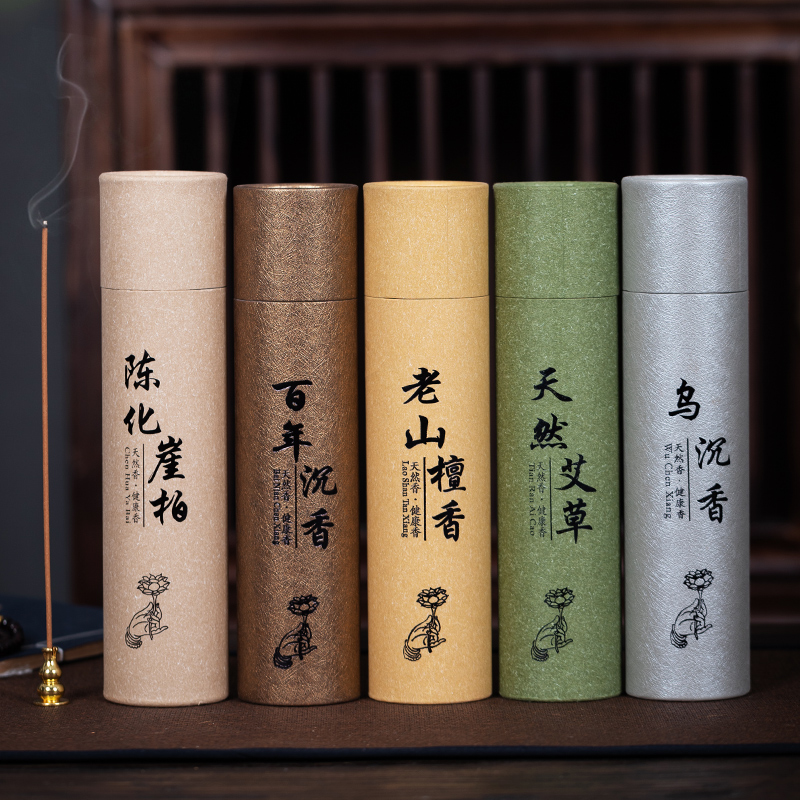 陈化
崖柏
天然香·健康香
百年
沉香
天然香·健康香
老山
檀香
天然香·健康香
Lao Shan Tan Xiang
天然
艾草
天然香·健康香
Tian Ran Ai Cao
乌
沉香
天然香·健康香
Wu Chen Xiang